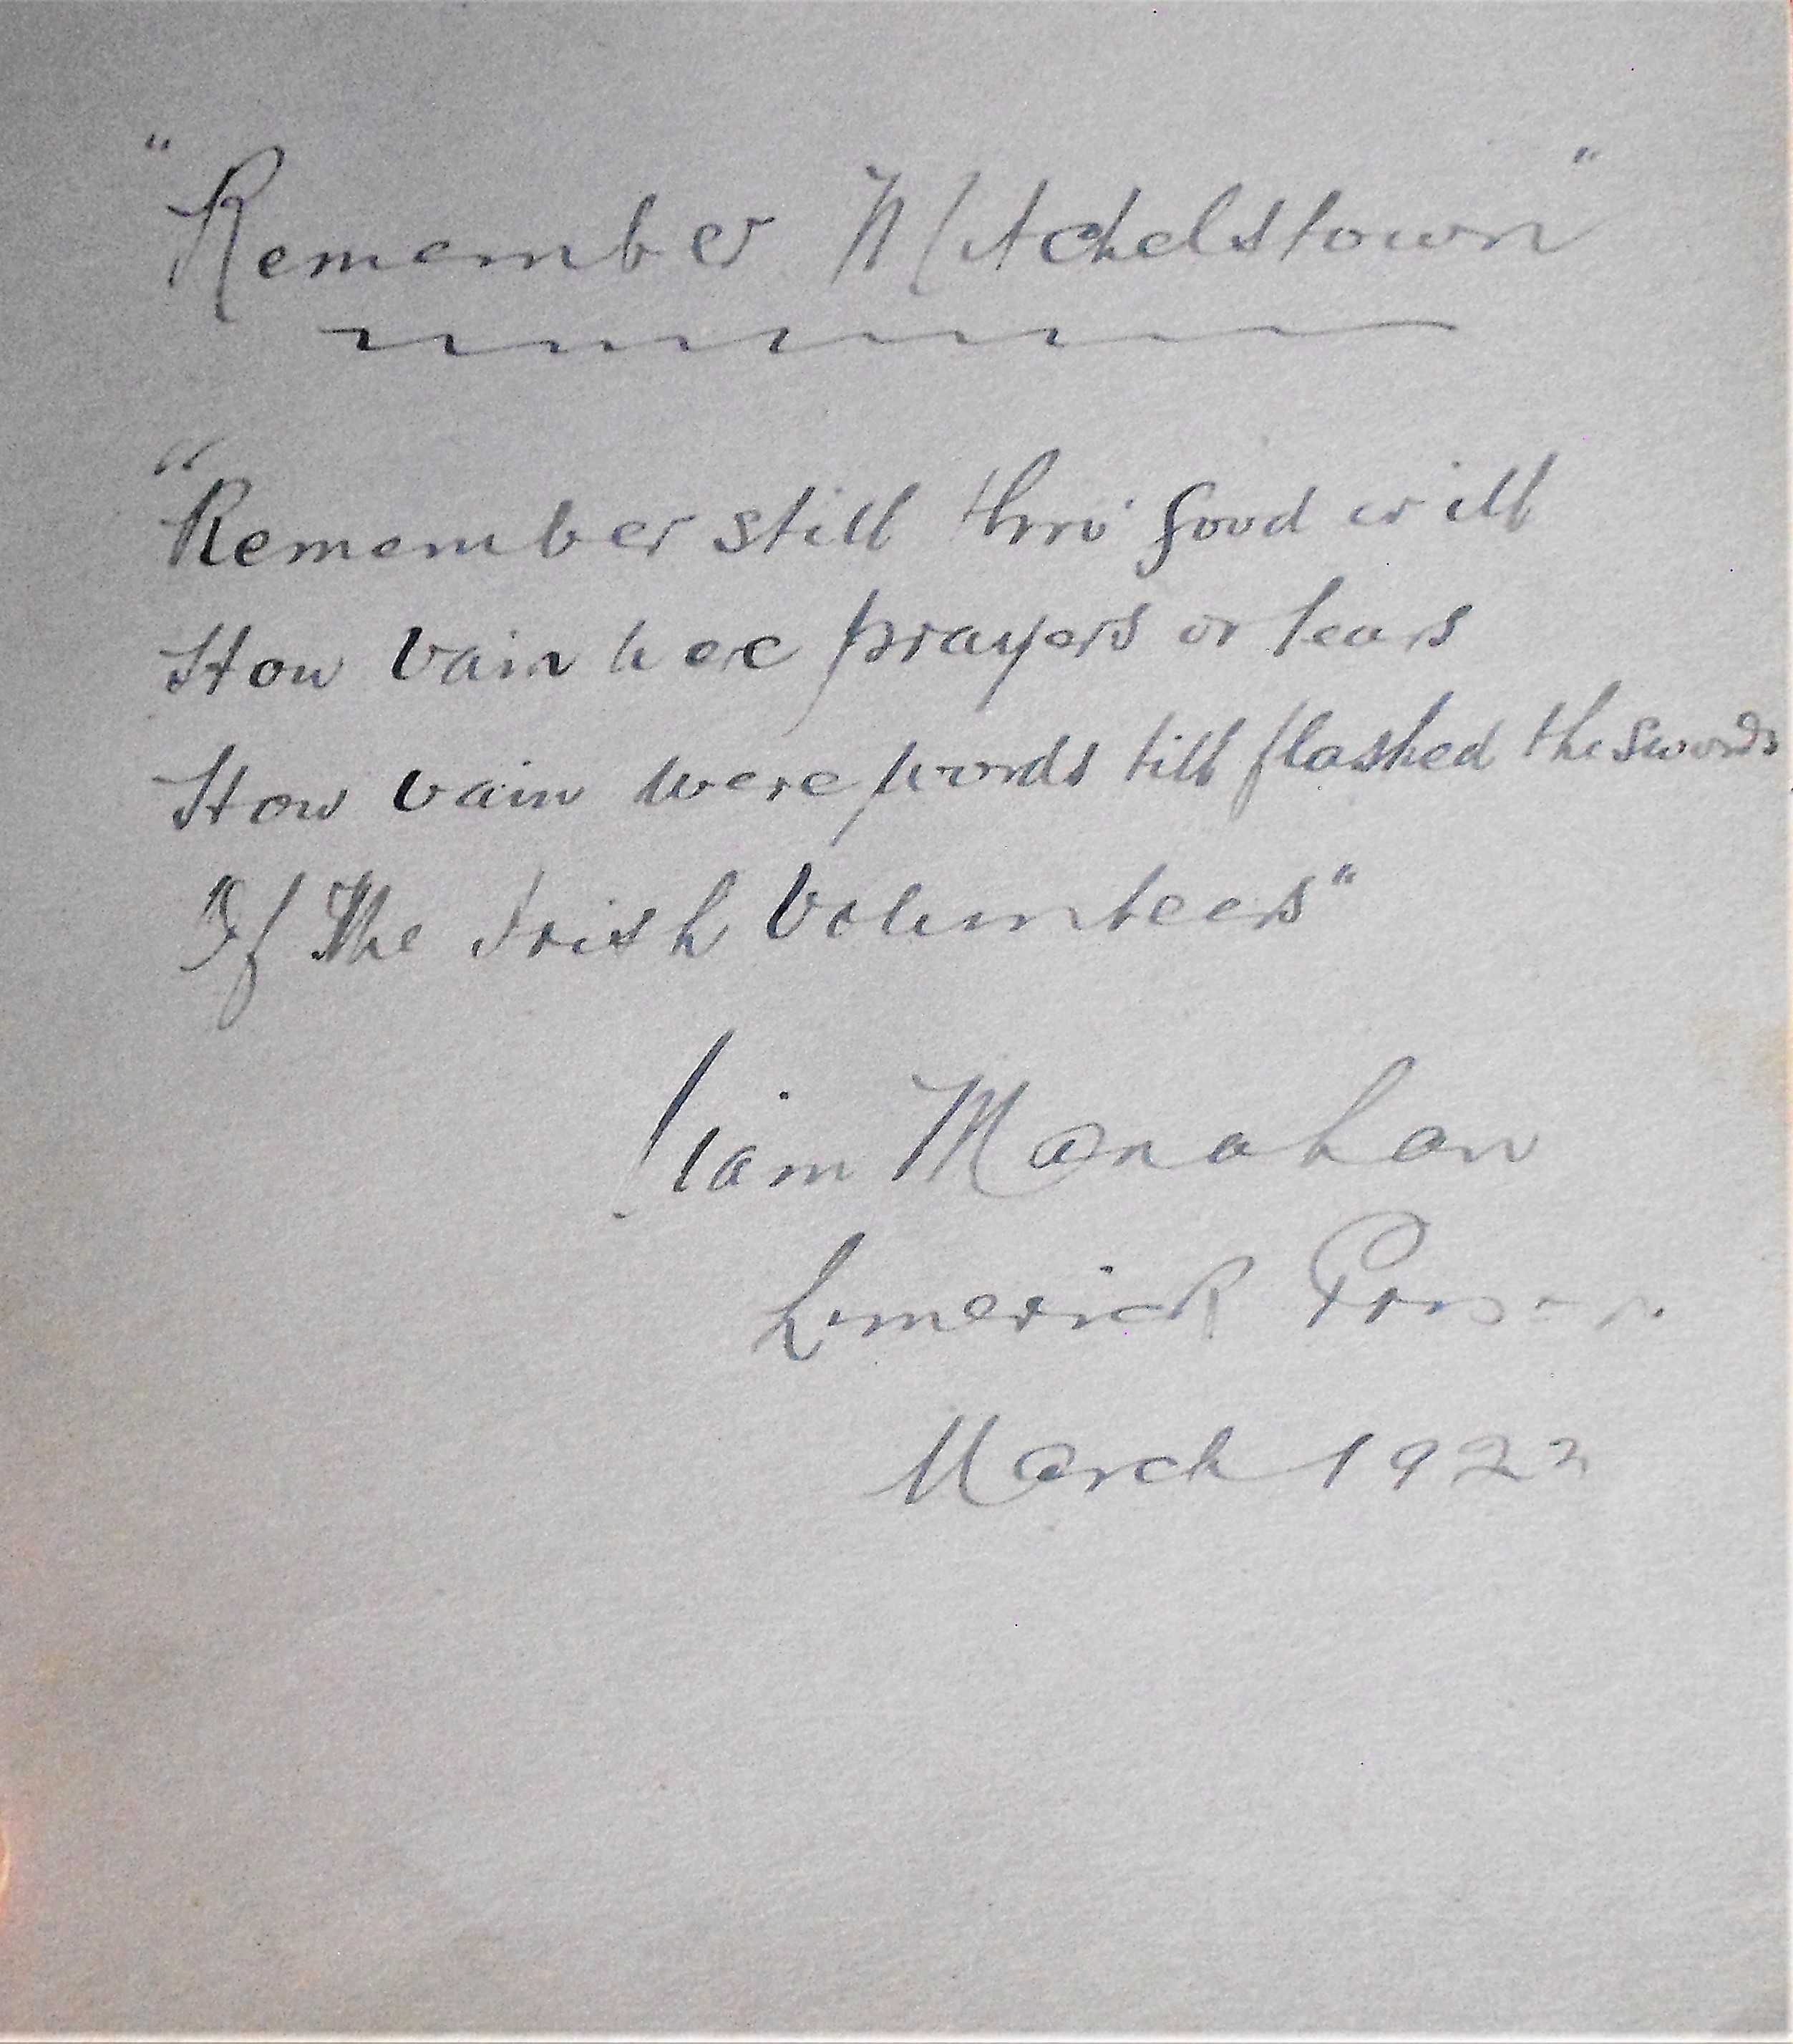 "Remember Mitchelstown"
"Remember still thro' good or ill
How vain were prayers or tears
How vain were words till flashed the swords
Of The Irish Volunteers"
Liam Manahan
Limerick Prison.
March 1922